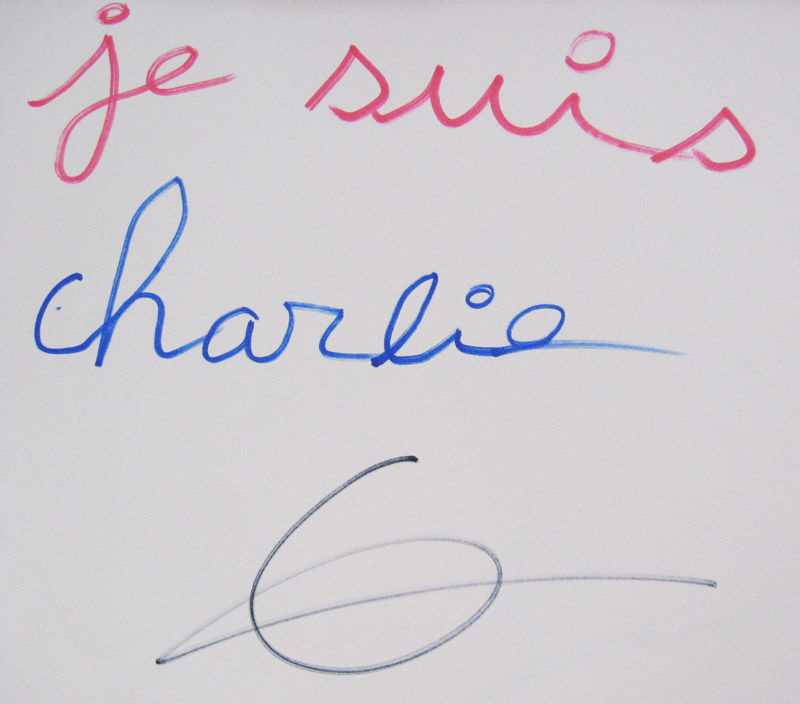 je suis
charlie